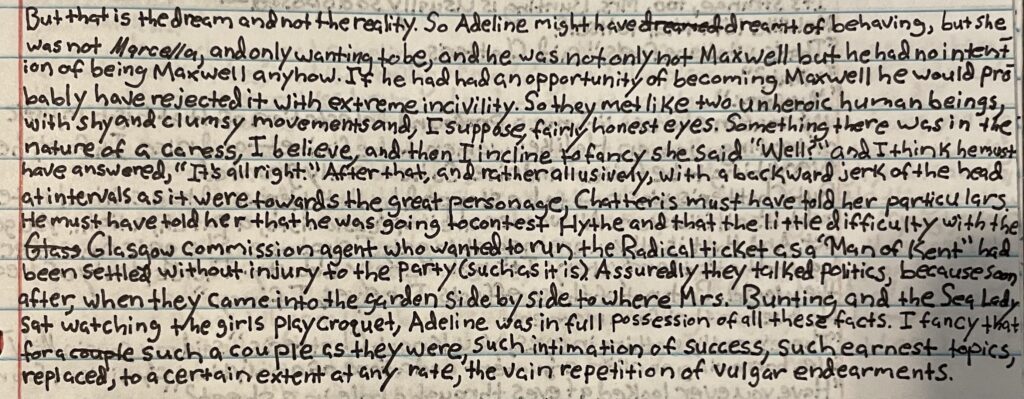 But that is the dream and not the reality. So Adeline might have dreamed dreamt of behaving, but she
was not Marcella, and only wanting to be, and he was not only not Maxwell but he had no intent
ion of being Maxwell anyhow. If he had had an opportunity of becoming Maxwell he would pro
bably have rejected it with extreme incivility. So they met like two unheroic human beings,
with shy and clumsy movements and, I suppose, fairly honest eyes. Something there was in the
nature of a caress, I believe, and then I incline to fancy she said "Well?" and I think he must
have answered, "It's all right." After that, and rather allusively, with a backward jerk of the head
at intervals as it were towards the great personage, Chatteris must have told her particulars.
He must have told her that he was going to contest Hythe and that the little difficulty with the
Glass Glasgow commission agent who wanted to run the Radical ticket as a "Man of Kent" had
been settled without injury to the party (such as it is). Assuredly they talked politics, because soon
after, when they came into the garden side by side to where Mrs. Bunting and the Sea Lady
sat watching the girls play croquet, Adeline was in full possession of all these facts. I fancy that
for a couple such a couple as they were, such intimation of success, such earnest topics,
replaced, to a certain extent at any rate, the vain repetition of vulgar endearments.